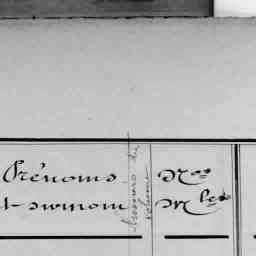 Prénoms
et surnom
Nos
Mles